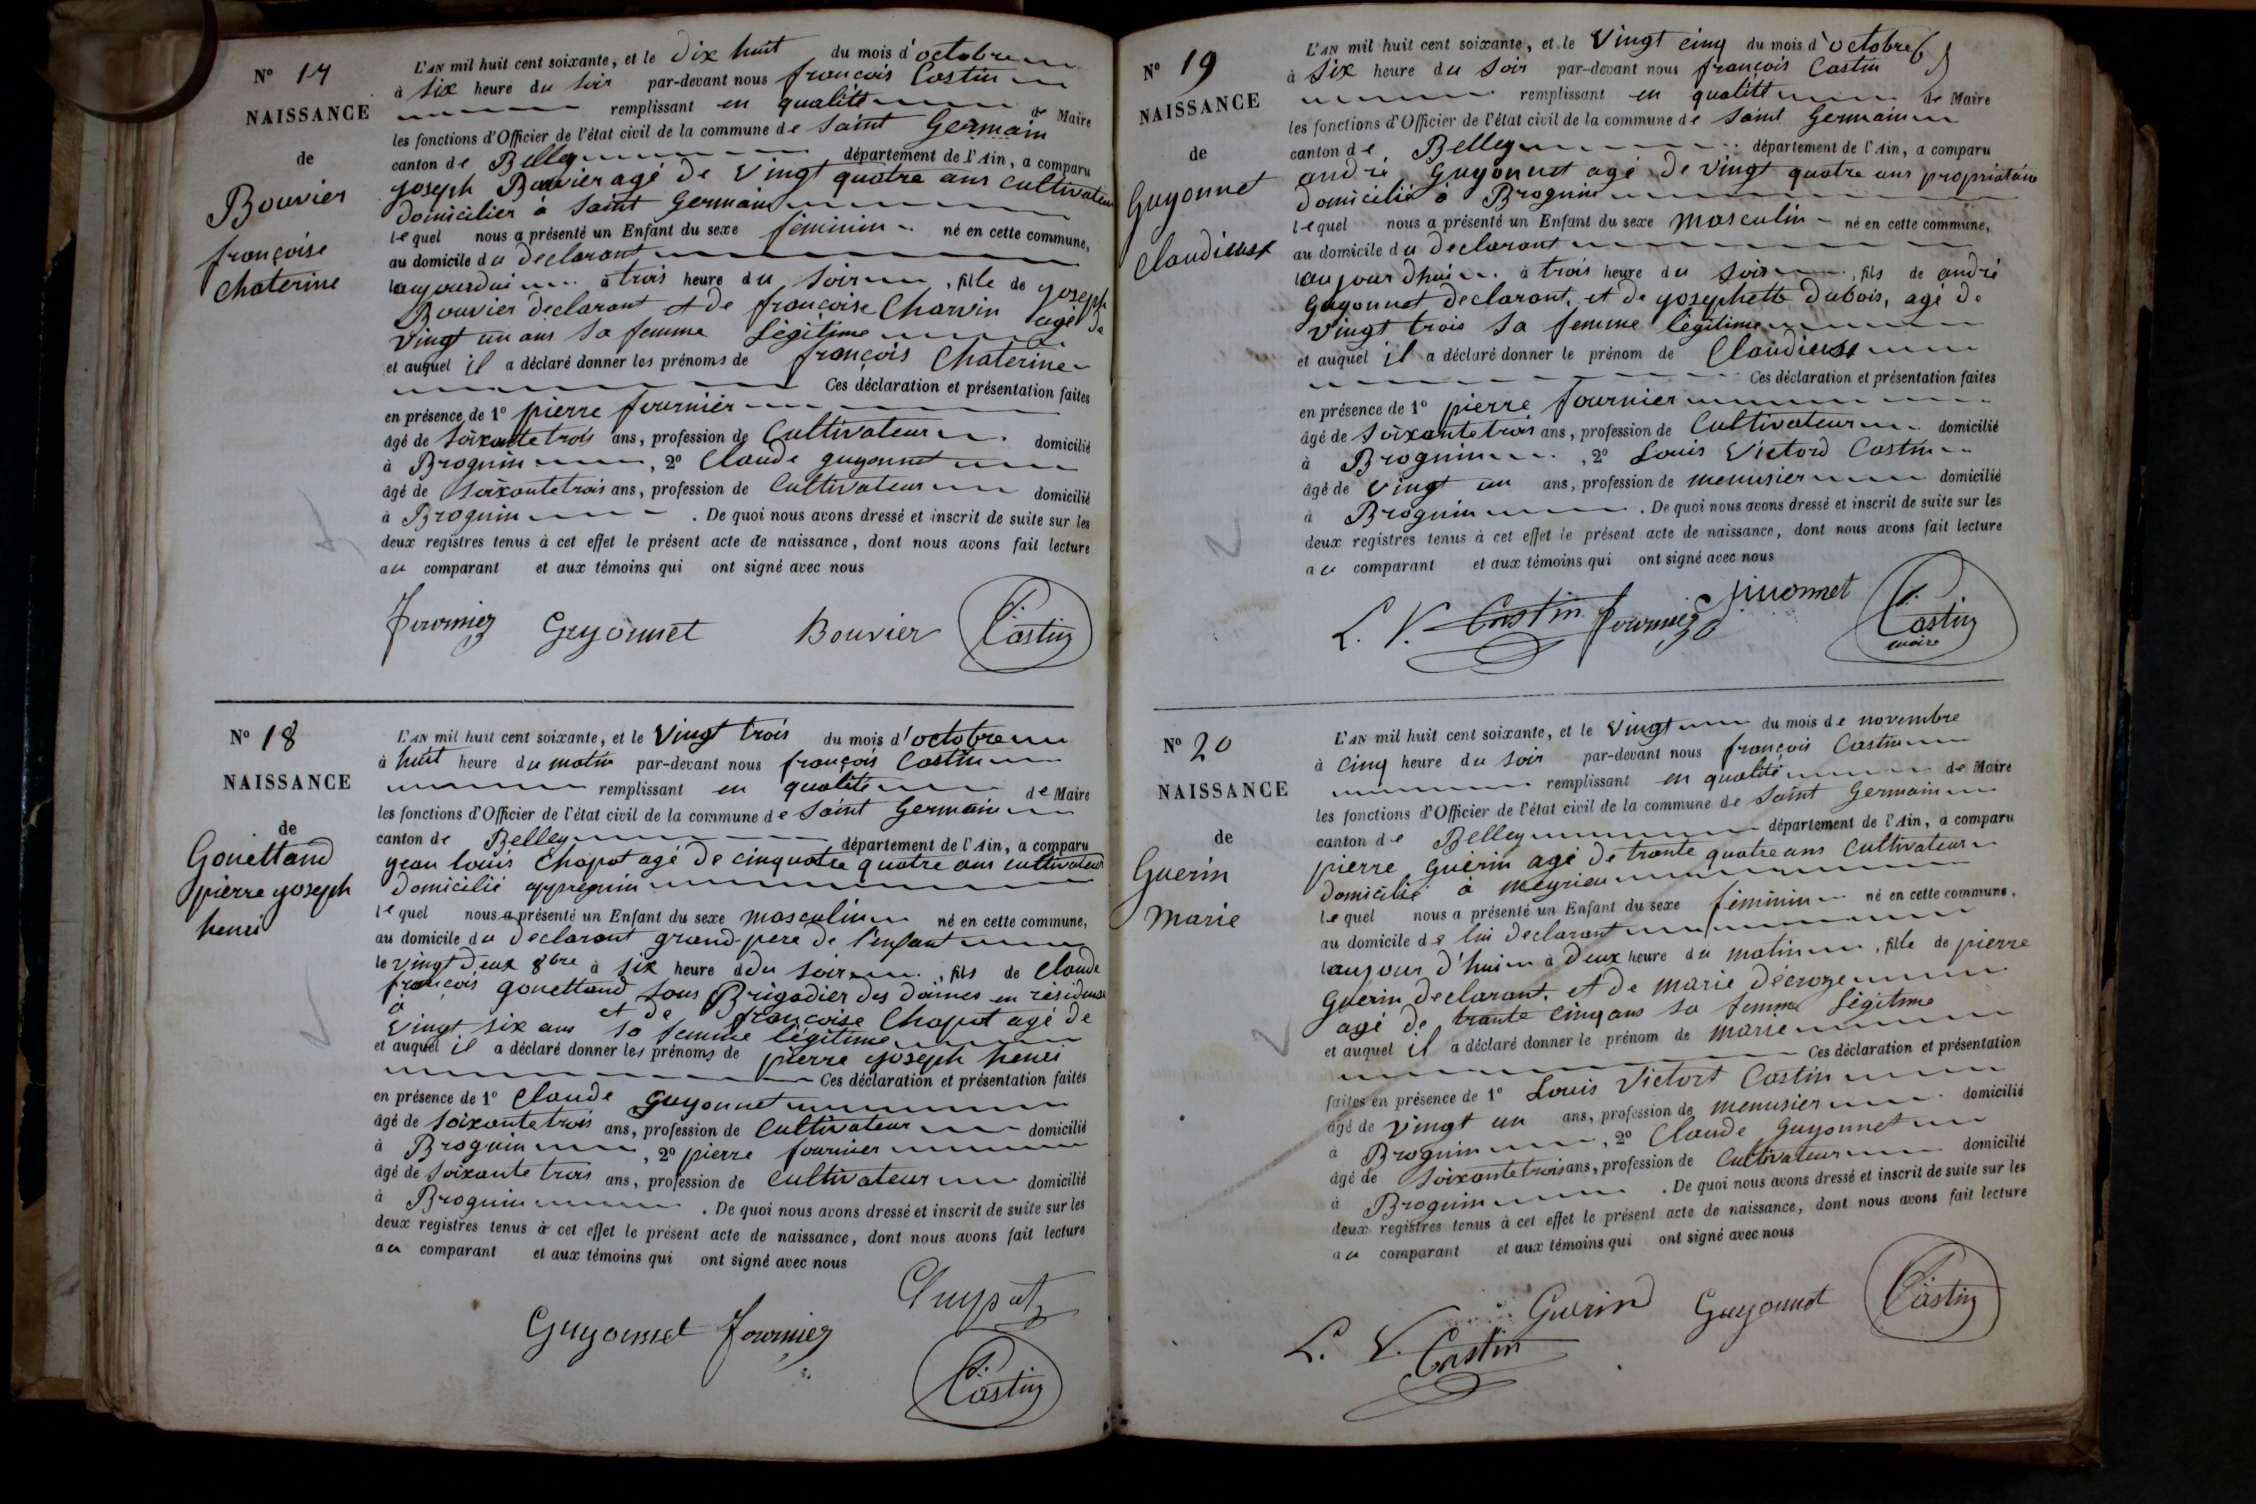 N° 17
NAISSANCE
de
Bouvier
françoise
Chaterine
L'AN mil huit cent soixante, et le dix huit du mois d'octobre
à six heure du soir par-devant nous françois Castin
remplissant en qualité de Maire
les fonctions d'Officier de l'état civil de la commune de Saint Germain
canton de Belley département de l'Ain, a comparu
yoseph Bouvier agé de Vingt quatre ans cultivateur
domicilier à Saint Germain
lequel nous a présenté un Enfant du sexe féminin né en cette commune,
au domicile du declarant
aujourdui à trois heure du soir, fille de yoseph
Bouvier declarant et de françoise Charvin agé de
Vingt un ans sa femme Légitime
et auquel il a déclaré donner les prénoms de françois Chaterine
Ces déclaration et présentation faites
en présence de 1° pierre fournier
âgé de Soixante trois ans, profession de Cultivateur domicilié
à Brognin, 2° Claude guyonnet
âgé de Soixante trois ans, profession de Cultivateur domicilié
à Brognin. De quoi nous avons dressé et inscrit de suite sur les
deux registres tenus à cet effet le présent acte de naissance, dont nous avons fait lecture
au comparant et aux témoins qui ont signé avec nous
Fournier Guyonnet Bouvier Castin
N° 18
NAISSANCE
de
Gouettand
pierre yoseph
henri
L'AN mil huit cent soixante, et le Vingt trois du mois d'octobre
à huit heure du matin par-devant nous françois Castin
remplissant en qualité de Maire
les fonctions d'Officier de l'état civil de la commune de Saint Germain
canton de Belley département de l'Ain, a comparu
yean louis Chapot agé de cinquate quatre ans cultivateur
domicilié appregnin
lequel nous a présenté un Enfant du sexe masculin né en cette commune,
au domicile du declarant grand-pere de l'enfant
le vingt deux 8bre à six heure du soir, fils de Claude
françois gouettand Sous Brigadier des doines en résidense
à et de françoise Chapot agé de
Vingt six ans sa femme légitime
et auquel il a déclaré donner les prénoms de pierre yoseph henri
Ces déclaration et présentation faites
en présence de 1° Claude Guyonnet
âgé de Soixante trois ans, profession de Cultivateur domicilié
à Brognin, 2° pierre fournier
âgé de Soixante trois ans, profession de Cultivateur domicilié
à Brognin. De quoi nous avons dressé et inscrit de suite sur les
deux registres tenus à cet effet le présent acte de naissance, dont nous avons fait lecture
au comparant et aux témoins qui ont signé avec nous
Guyonnet Fournier
Castin
N° 19
NAISSANCE
de
Guyonnet
Claudieusse
L'AN mil huit cent soixante, et le Vingt cinq du mois d'octobre
à Six heure du Soir par-devant nous françois Castin
remplissant en qualité de Maire
les fonctions d'Officier de l'état civil de la commune de Saint Germain
canton de Belley département de l'Ain, a comparu
andré Guyonnet agé de vingt quatre ans propriétaire
domicilié à Brognin
lequel nous a présenté un Enfant du sexe masculin né en cette commune,
au domicile du declarant
aujourdhui à trois heure du soir, fils de andré
Guyonnet declarant, et de yosephette Dubois, agé de
Vingt trois sa femme légitime
et auquel il a déclaré donner le prénom de Claudieusse
Ces déclaration et présentation faites
en présence de 1° pierre fournier
âgé de Soixante trois ans, profession de Cultivateur domicilié
à Brognin, 2° Louis Victord Castin
âgé de Vingt un ans, profession de menusier domicilié
à Brognin. De quoi nous avons dressé et inscrit de suite sur les
deux registres tenus à cet effet le présent acte de naissance, dont nous avons fait lecture
au comparant et aux témoins qui ont signé avec nous
L. V. Castin Fournier Guyonnet Castin
maire
N° 20
NAISSANCE
de
Guerin
Marie
L'AN mil huit cent soixante, et le Vingt du mois de novembre
à Cinq heure du soir par-devant nous françois Castin
remplissant en qualité de Maire
les fonctions d'Officier de l'état civil de la commune de Saint Germain
canton de Belley département de l'Ain, a comparu
pierre guerin agé de trante quatre ans Cultivateur
domicilié à meyrieu
lequel nous a présenté un Enfant du sexe féminin né en cette commune,
au domicile de lui declarant
aujour d'hui à Deux heure du matin, fille de pierre
Guérin declarant. et de marie Décroze
agé de trante cinq ans sa femme légitime
et auquel il a déclaré donner le prénom de marie
Ces déclaration et présentation
faites en présence de 1° Louis Victort Castin
âgé de Vingt un ans, profession de menusier domicilié
à Brognin, 2° Claude guyonnet
âgé de Soixante trois ans, profession de Cultivateur domicilié
à Brognin. De quoi nous avons dressé et inscrit de suite sur les
deux registres tenus à cet effet le présent acte de naissance, dont nous avons fait lecture
au comparant et aux témoins qui ont signé avec nous
Guerin Guyonnet Castin
L. V. Castin